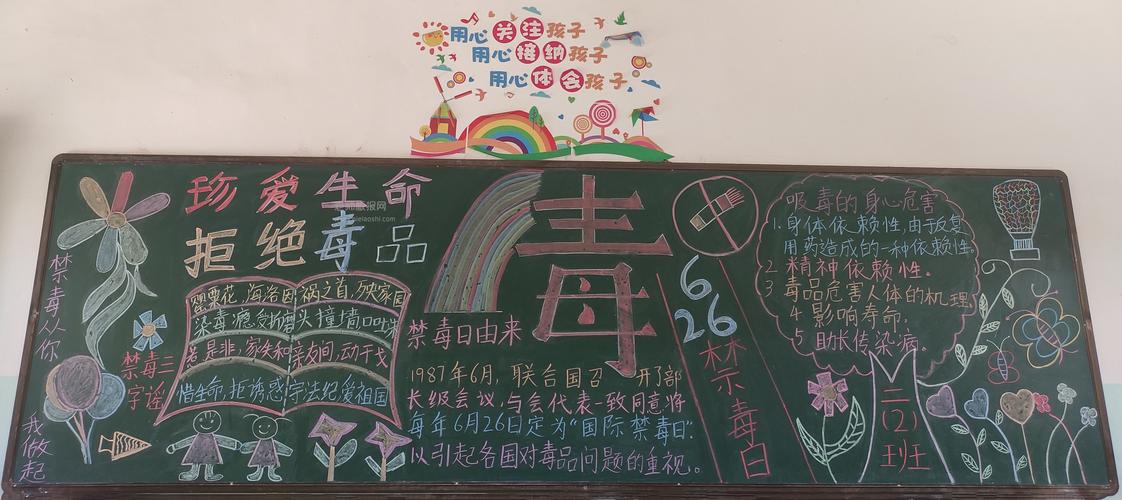 用心关注孩子
用心接纳孩子
用心体会孩子
珍爱生命
拒绝毒品
禁毒从你
我做起
禁毒三
字谣
罂粟花,海洛因,祸之首,殃家园
染毒瘾,受折磨,头撞墙,口吐沫
惹是非,家失和,亲友间,动干戈
惜生命,拒诱惑,守法纪,爱祖国
毒
禁毒日由来
1987年6月,联合国召开了部
长级会议,与会代表一致同意将
每年6月26日定为“国际禁毒日”
以引起各国对毒品问题的重视。
6
26
禁毒日
吸毒的身心危害
1.身体依赖性,由于反复
用药造成的一种依赖性
2 精神依赖性。
3 毒品危害人体的机理
4 影响寿命。
5 助长传染病。
二
(2)
班